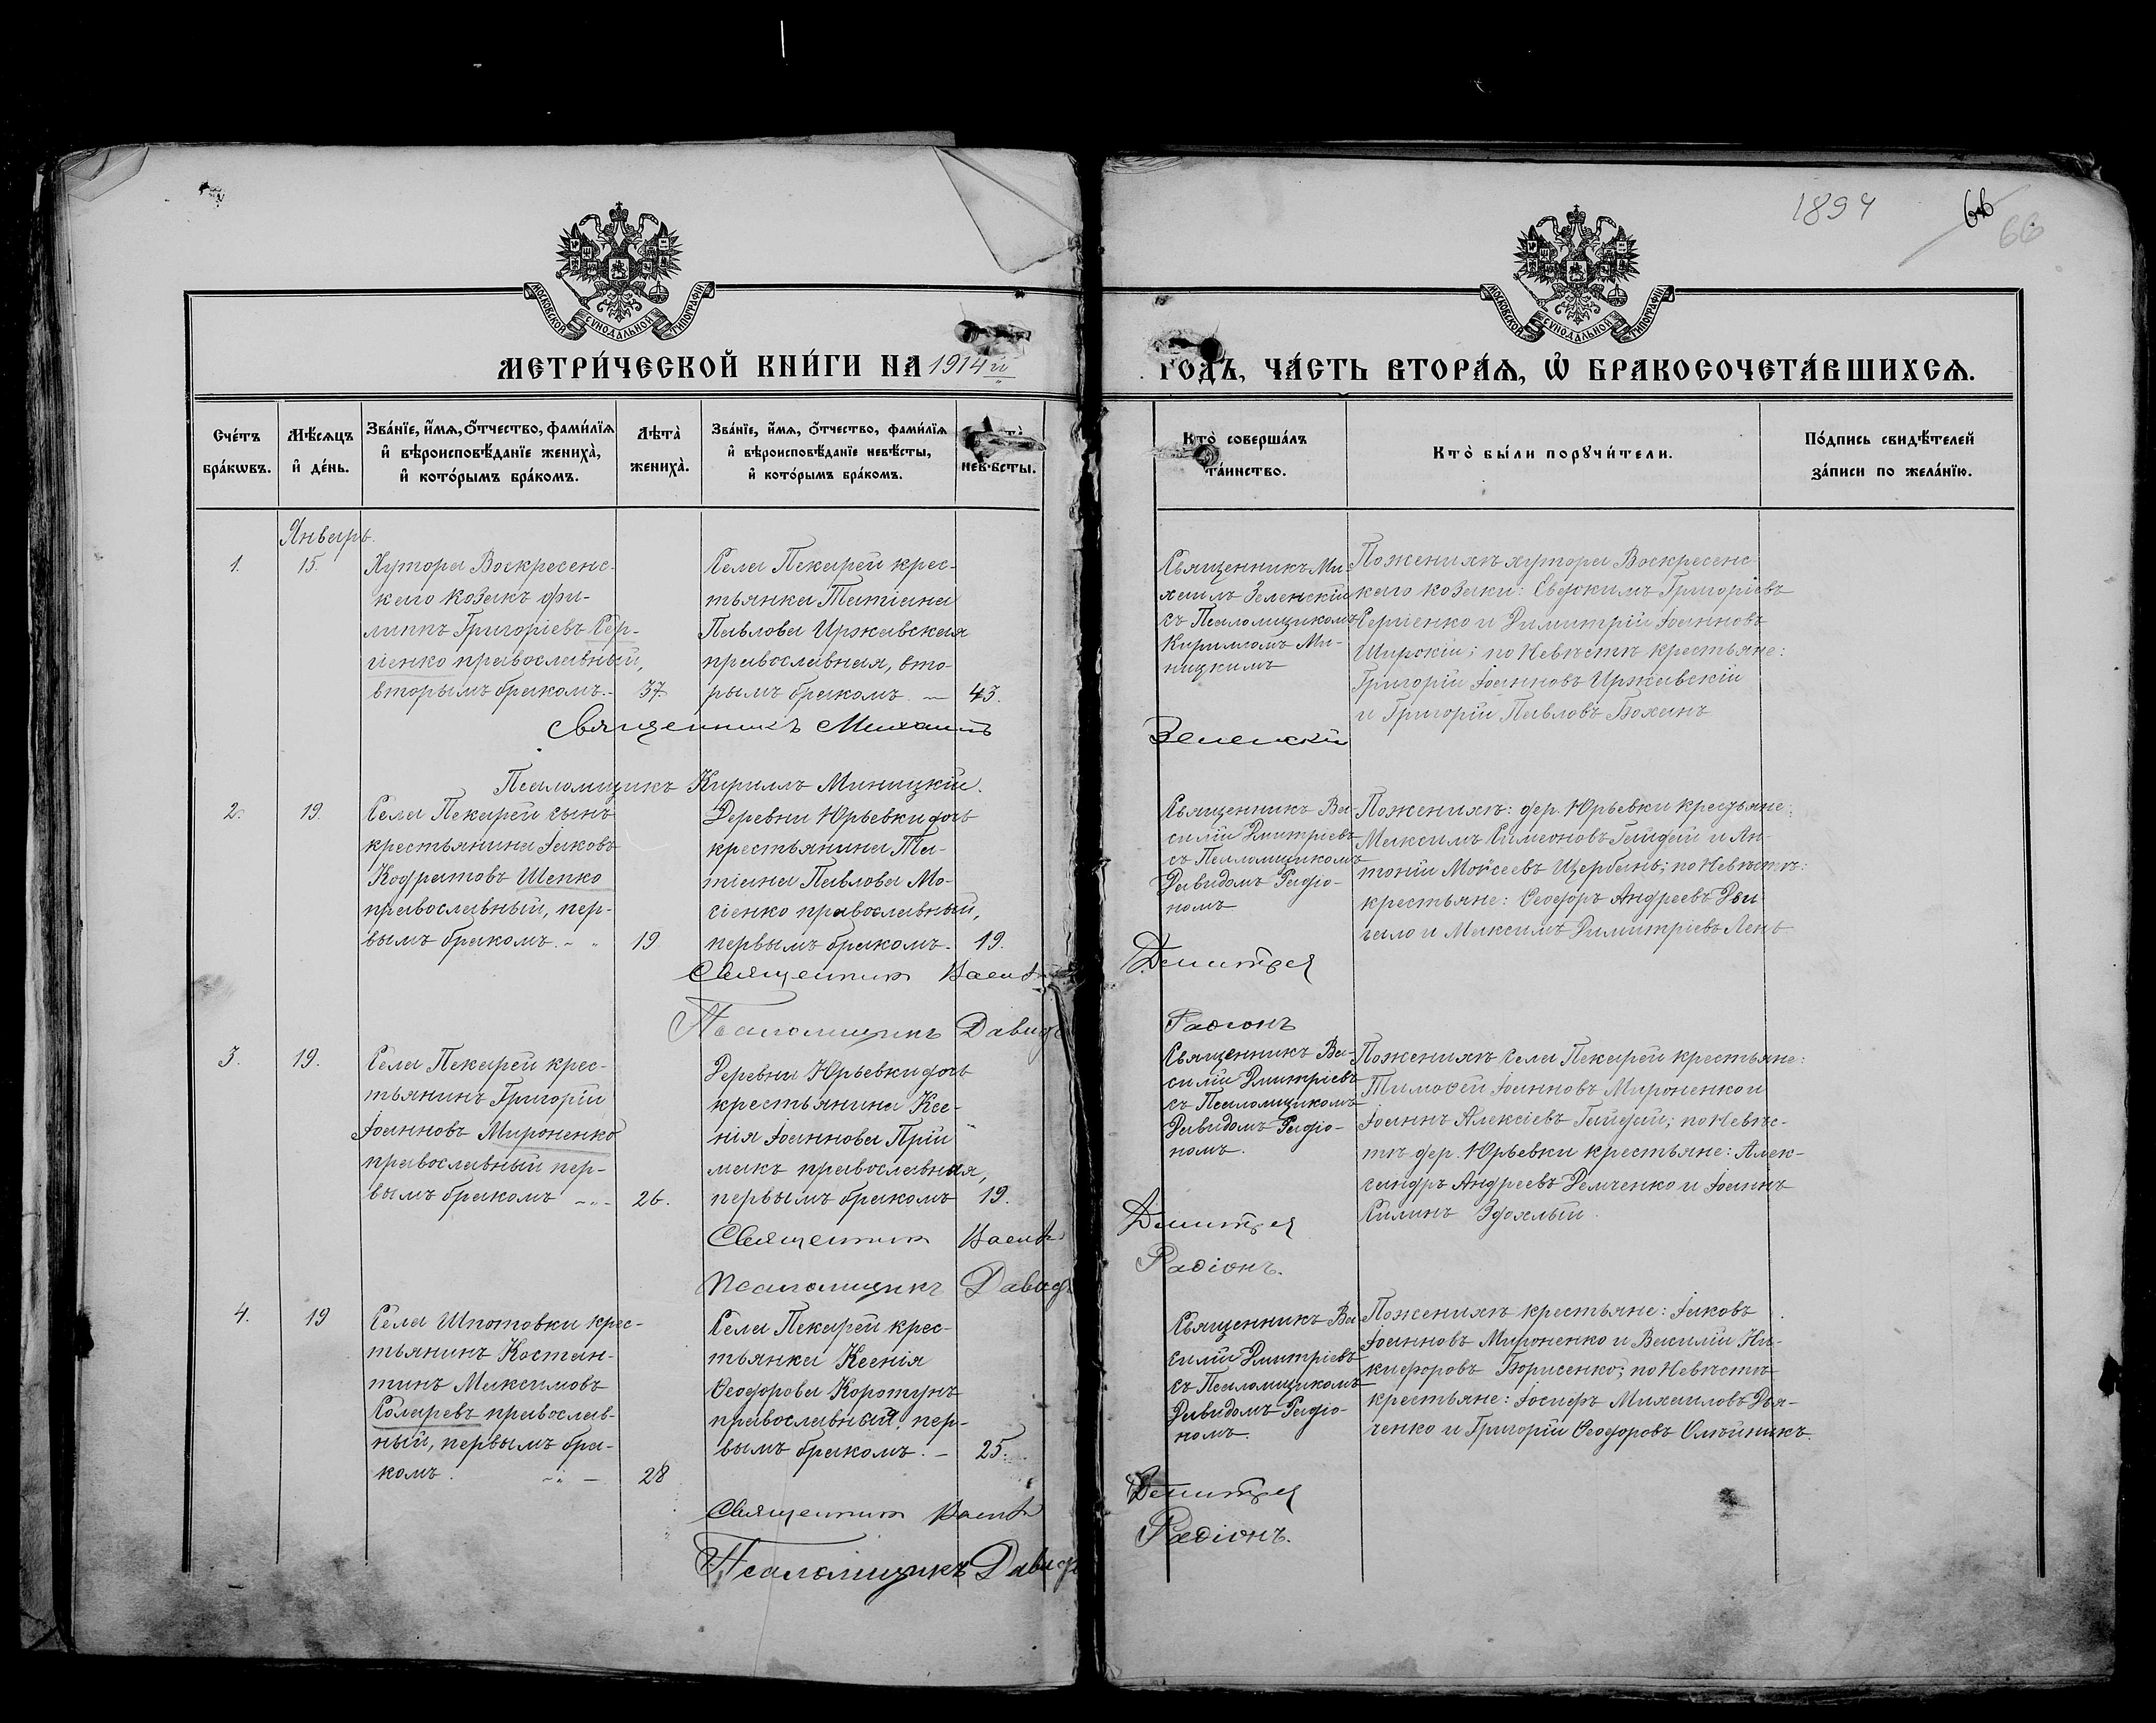 1894
66
66
МОСКОВСКОЙ СѴНОДАЛЬНОЙ ТИПОГРАФІИ
МОСКОВСКОЙ СѴНОДАЛЬНОЙ ТИПОГРАФІИ
МЕТРИ́ЧЕСКОЙ КНИ́ГИ НА 1914й
ГОДЪ, ЧА́СТЬ ВТОРА́Ѧ, Ѡ҆ БРАКОСОЧЕТА́ВШИХСѦ.
Сче́тъ
бра́кѡвъ.
Мѣ́сѧцъ
и҆ де́нь.
Зва́нїе, и҆́мѧ, ѻ҆́тчество, фами́лїѧ
и҆ вѣроисповѣ́данїе жениха̀,
и҆ кото́рымъ бра́комъ.
Лѣта̀
жениха̀.
Зва́нїе, и҆́мѧ, ѻ҆́тчество, фами́лїѧ
и҆ вѣроисповѣ́данїе невѣ́сты,
и҆ кото́рымъ бра́комъ.
невѣ́сты.
Кто̀ соверша́лъ
та́инство.
Кто̀ бы́ли порꙋчи́тели.
По́дпись свидѣ́телей
за́писи по жела́нїю.
Январь.
1.
15.
Хутора Воскресенс-
каго козакъ Фи-
липпъ Григоріевъ Сер-
гіенко православный,
вторымъ бракомъ.-
37.
Села Пекарей крес-
тьянка Татіана
Павлова Иржавская
православная, вто-
рымъ бракомъ. —
43.
Священникъ Ми-
хаилъ Зеленскій
съ Псаломщикомъ
Кирилломъ Ми-
ницкимъ
По женихѣ хутора Воскресенс-
каго козаки: Евдокимъ Григоріевъ
Сергіенко и Димитрій Іоанновъ
Ширскій; по Невѣстѣ крестьяне:
Григорій Іоанновъ Иржавскій
и Григорій Павловъ Боханъ
Священникъ Михаилъ Зеленскій
Псаломщикъ Кириллъ Миницкій.
2.
19.
Села Пекарей сынъ
крестьянина Іаковъ
Кодратовъ Шепко
православный, пер-
вымъ бракомъ. - "
19.
Деревни Юрьевки дочь
крестьянина Та-
тіана Павлова Мо-
сіенко православный,
первымъ бракомъ.
19.
Священникъ Ва-
силій Дмитріевъ
съ Псаломщикомъ
Давидомъ Радіо-
номъ
По женихѣ: дер. Юрьевки крестьяне:
Максимъ Симеоновъ Гайдай и Ан-
тоній Моѵсеевъ Щербань; по Невѣстѣ:
крестьяне: Ѳеодоръ Андреевъ
и Максимъ Димитріевъ Лень
Священникъ Димитрія
Псаломщикъ Давидъ Радіонъ
3.
19.
Села Пекарей крес-
тьянинъ Григорій
Іоанновъ Мироненко
православный пер-
вымъ бракомъ
26.
Деревни Юрьевки дочь
крестьянина Ксе-
нія Іоаннова Прій
макъ православная,
первымъ бракомъ
19.
Священникъ Ва-
силій Дмитріевъ
съ Псаломщикомъ
Давидомъ Радіо-
номъ.
По женихѣ села Пекарей крестьяне:
Тимоѳей Іоанновъ Мироненко и
Іоаннъ Алексіевъ Гайдай; по Невѣс-
тѣ дер. Юрьевки крестьяне: Алек-
сандръ Андреевъ Демченко и Іоаннъ
Силинъ Здохлый.
Священникъ Димитрія
Псаломщикъ Давидъ Радіонъ.
4.
19
Села Шпотовки крес-
тьянинъ Костан-
тинъ Максимовъ
Соларевъ православ-
ный, первымъ бра-
комъ.
28
Села Пекарей крес-
тьянка Ксенія
Ѳеодорова Коротунъ
православный, пер-
вымъ бракомъ. —
25.
Священникъ Ва-
силій Дмитріевъ
съ Псаломщикомъ
Давидомъ Радіо-
номъ.
По женихѣ крестьяне: Іаковъ
Іоанновъ Мироненко и Василій Ни-
кифоровъ Борисенко; по Невѣстѣ
крестьяне: Іосифъ Михаиловъ Дья-
ченко и Григорій Ѳеодоровъ Олѣйникъ.
Священникъ Димитрія
Псаломщикъ Давидъ Радіонъ.